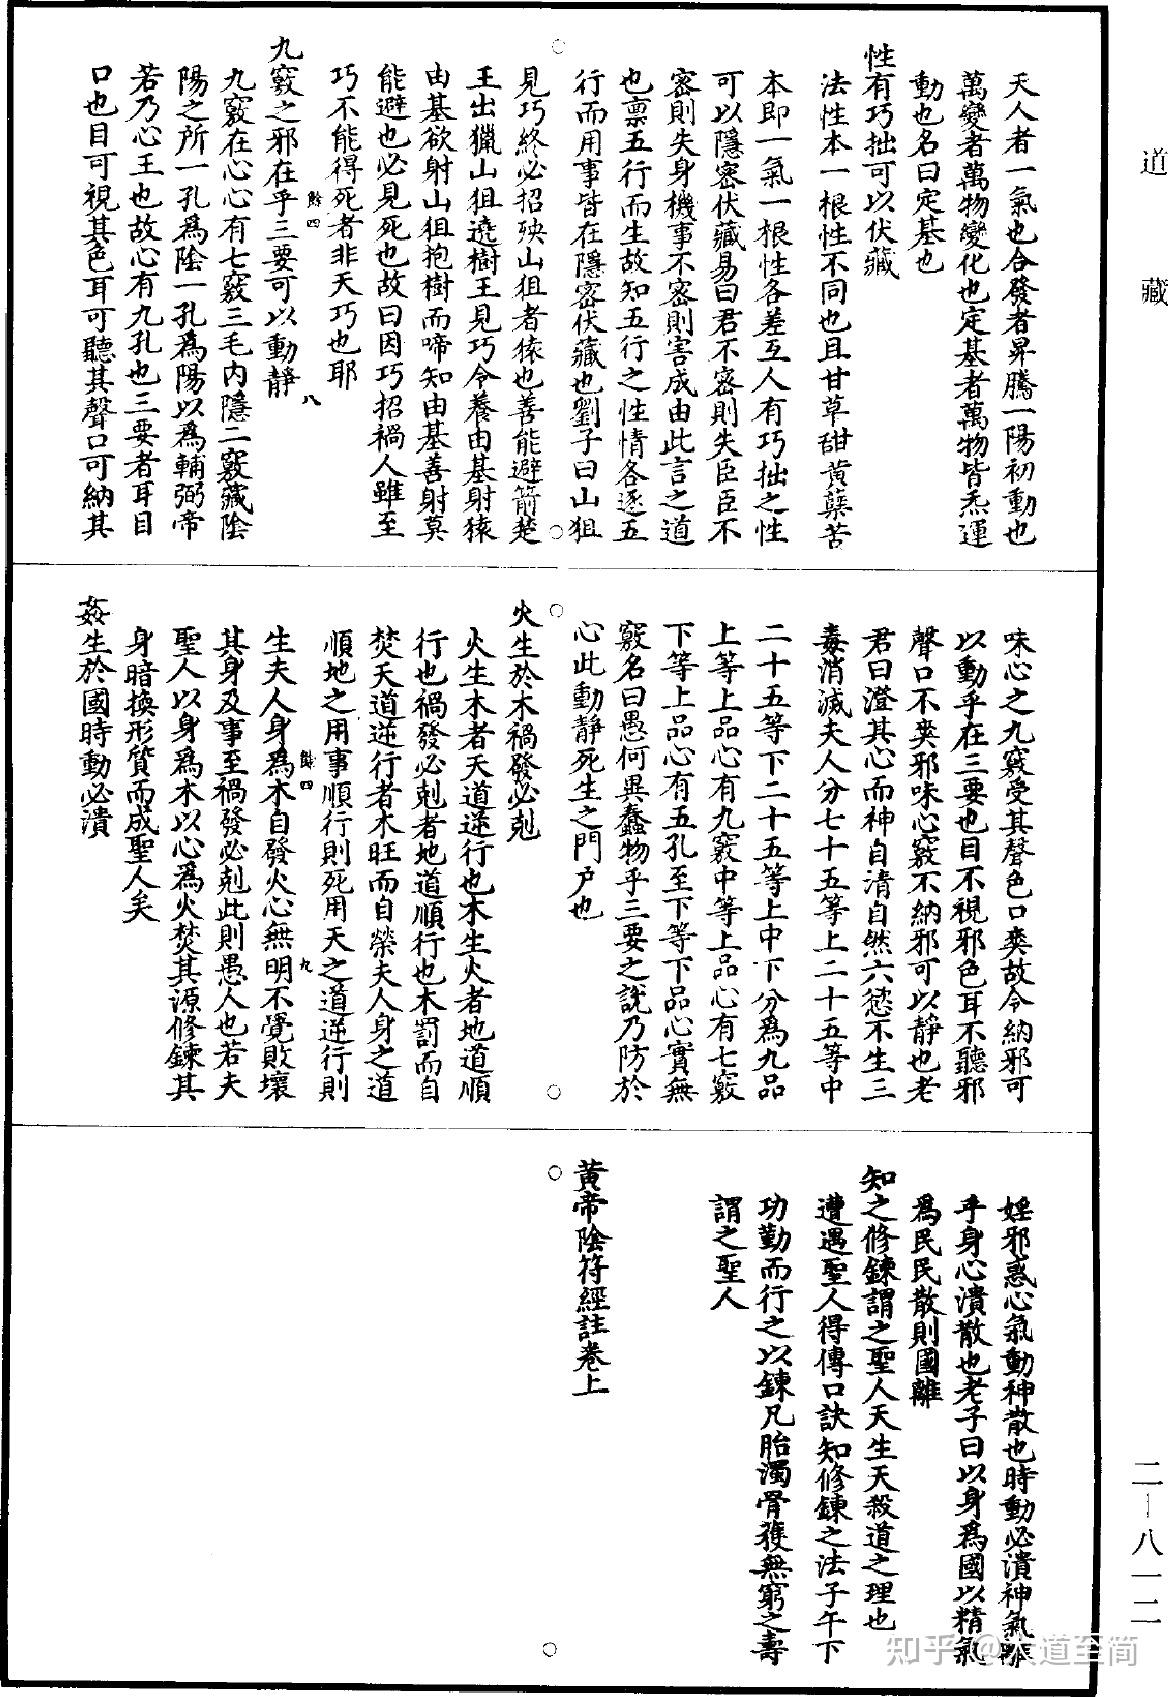 道藏
天人者一氣也合發者昇騰一陽初動也
萬變者萬物變化也定基者萬物皆炁運
動也名曰定基也
性有巧拙可以伏藏
法性本一根性不同也且甘草甜黄蘗苦
本即一氣一根性各差互人有巧拙之性
可以隱密伏藏易曰君不密則失臣臣不
密則失身機事不密則害成由此言之道
也禀五行而生故知五行之性情各逐五
行而用事皆在隱密伏藏也劉子曰山狙
見巧終必招殃山狙者猿也善能避箭楚
王出獵山狙遶樹王見巧令養由基射猿
由基欲射山狙抱樹而啼知由基善射莫
能避也必見死也故曰因巧招禍人雖至
巧不能得死者非天巧也耶
餘四
八
九竅之邪在乎三要可以動靜
九竅在心心有七竅三毛内隱二竅藏陰
陽之所一孔爲陰一孔爲陽以爲輔弼帝
若乃心王也故心有九孔也三要者耳目
口也目可視其色耳可聽其聲口可納其
味心之九竅受其聲色口爽故令納邪可
以動乎在三要也目不視邪色耳不聽邪
聲口不爽邪味心竅不納邪可以靜也老
君曰澄其心而神自清自然六慾不生三
毒消滅夫人分七十五等上二十五等中
二十五等下二十五等上中下分爲九品
上等上品心有九竅中等上品心有七竅
下等上品心有五孔至下等下品心實無
竅名曰愚何異蠢物乎三要之說乃防於
心此動靜死生之門户也
火生於木禍發必剋
火生木者天道逆行也木生火者地道順
行也禍發必剋者地道順行也木罰而自
焚天道逆行者木旺而自榮夫人身之道
順地之用事順行則死用天之道逆行則
餘四
九
生夫人身爲木自發火心無明不覺敗壞
其身及事至禍發必剋此則愚人也若夫
聖人以身爲木以心爲火焚其源修鍊其
身暗換形質而成聖人矣
姦生於國時動必潰
婬邪惑心氣動神散也時動必潰神氣離
乎身心潰散也老子曰以身爲國以精氣
爲民民散則國離
知之修鍊謂之聖人天生天殺道之理也
遭遇聖人得傳口訣知修鍊之法子午下
功勤而行之以鍊凡胎濁骨獲無窮之壽
謂之聖人
黄帝陰符經註卷上
二—八一二
知乎 @大道至简